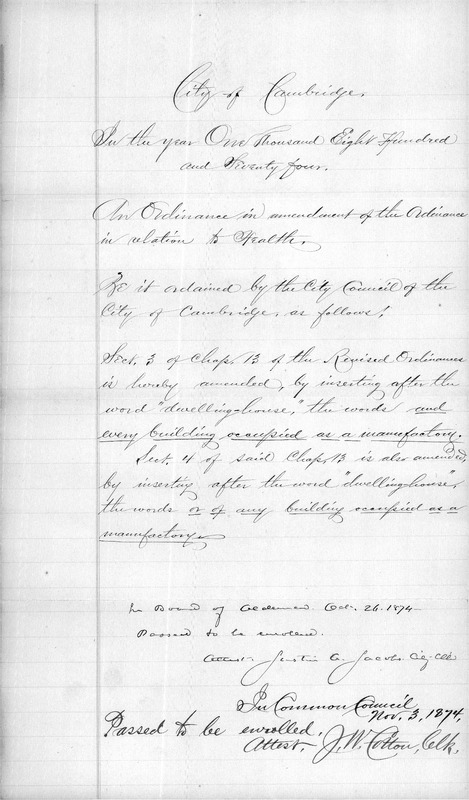 City of Cambridge.
In the year One Thousand Eight Hundred
and Seventy four.
An Ordinance in amendment of the Ordinance
in relation to Health.
Be it ordained by the City Council of the
City of Cambridge, as follows:
Sect. 3 of Chap. 13 of the Revised Ordinances
is hereby amended, by inserting after the
word "dwellinghouse," the words and
every building occupied as a manufactory.
Sect. 4 of said Chap. 13 is also amended,
by inserting after the word "dwellinghouse",
the words or of any building occupied as a
manufactory.
In Board of Aldermen. Oct. 26. 1874
Passed to be enrolled.
Attest. Justin A. Jacobs. City Clk
In Common Council
Nov. 3, 1874.
Passed to be enrolled.
Attest, J. W. Cotton, Clk.